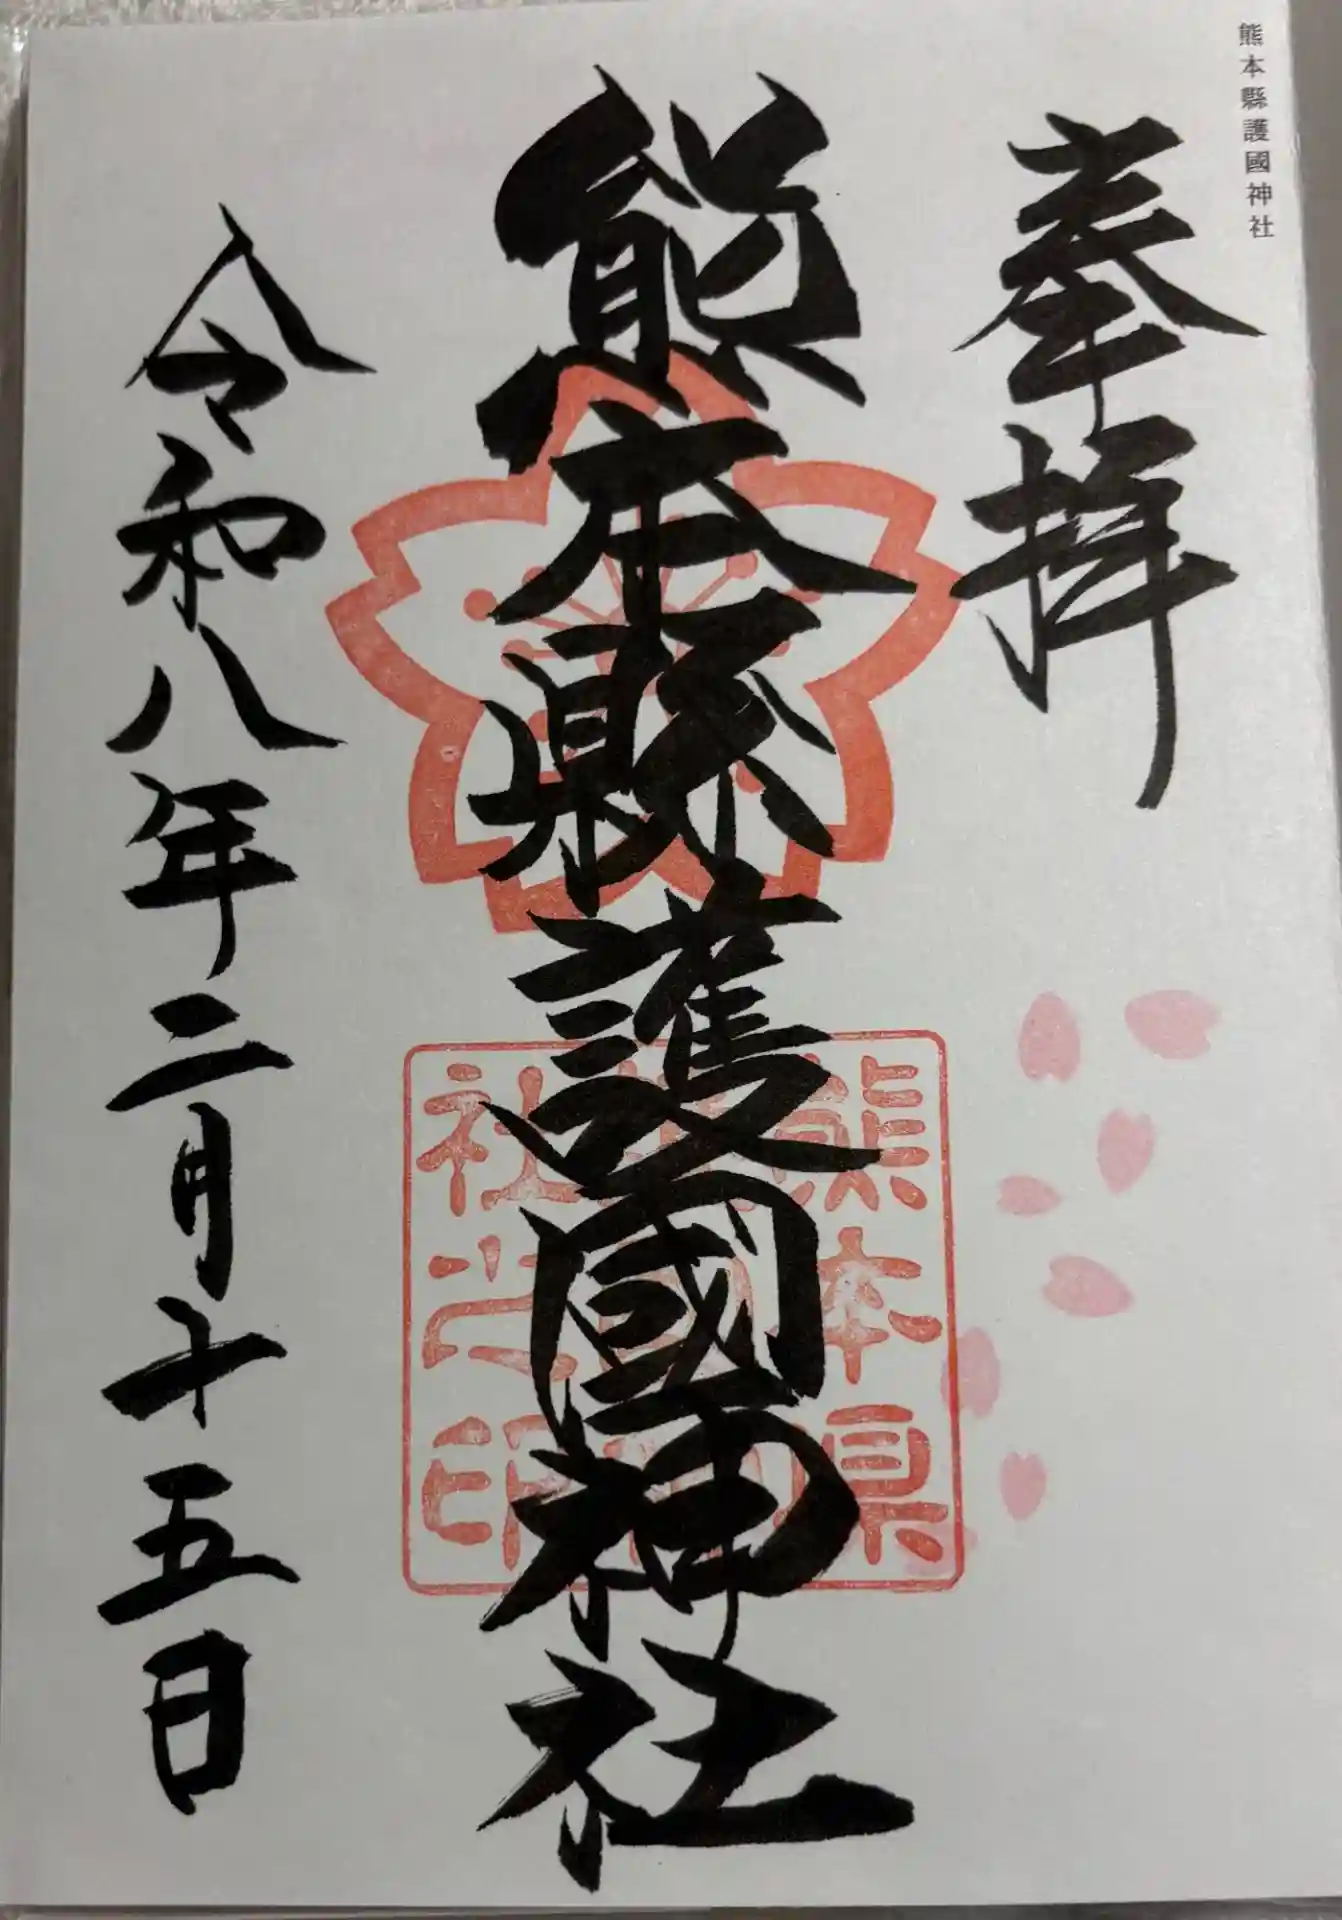 熊本縣護國神社
奉拝
熊本縣護國神社
熊本県
社之印
令和八年二月十五日